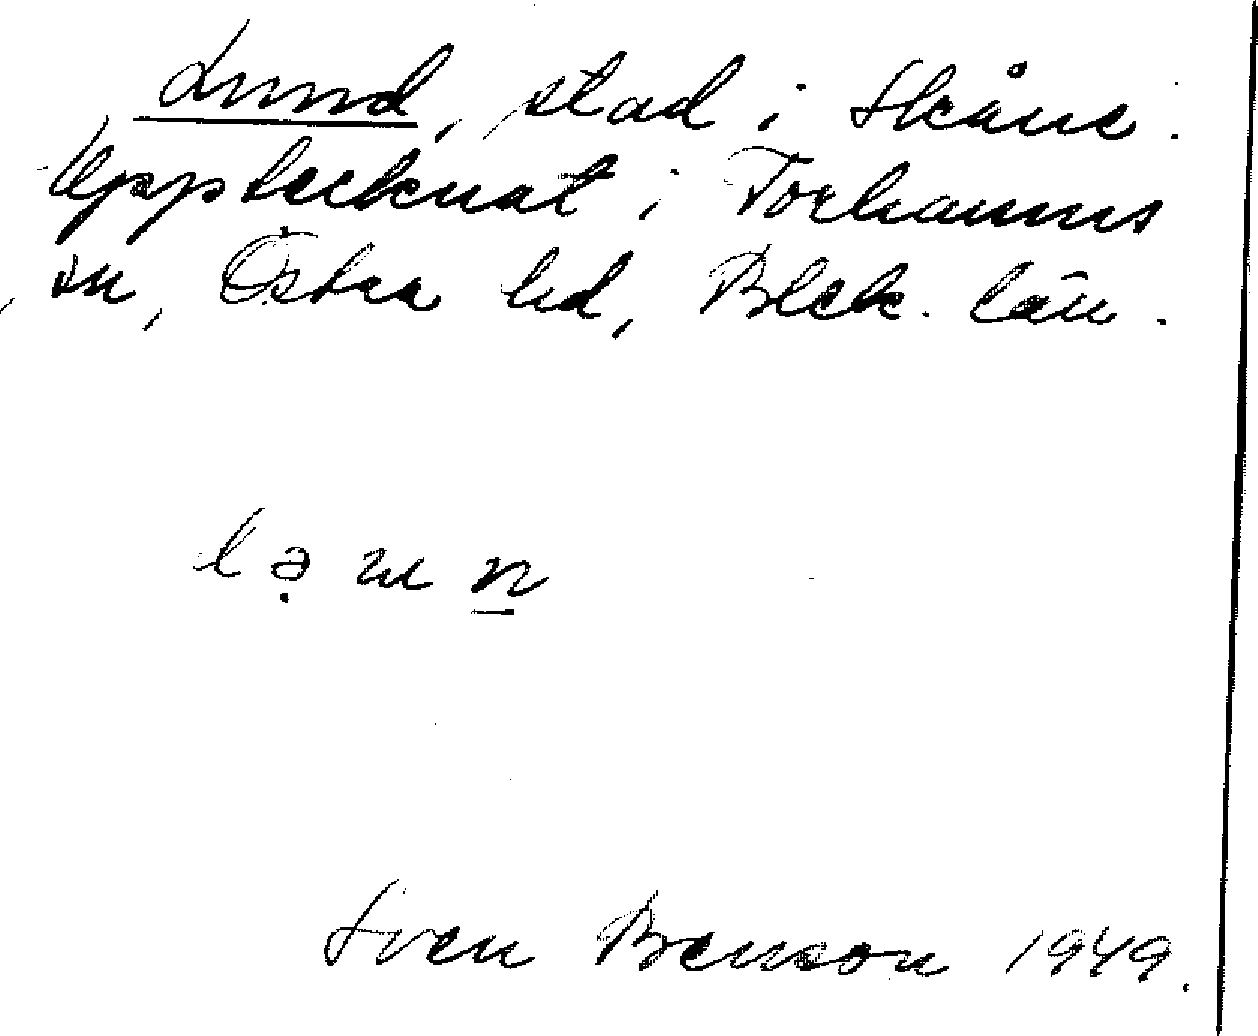 Lund, stad i Skåne.
Upptecknat i Torhamns
sn, Östra hd, Blek. län.
lə̣un̲
Sven Benson 1949.